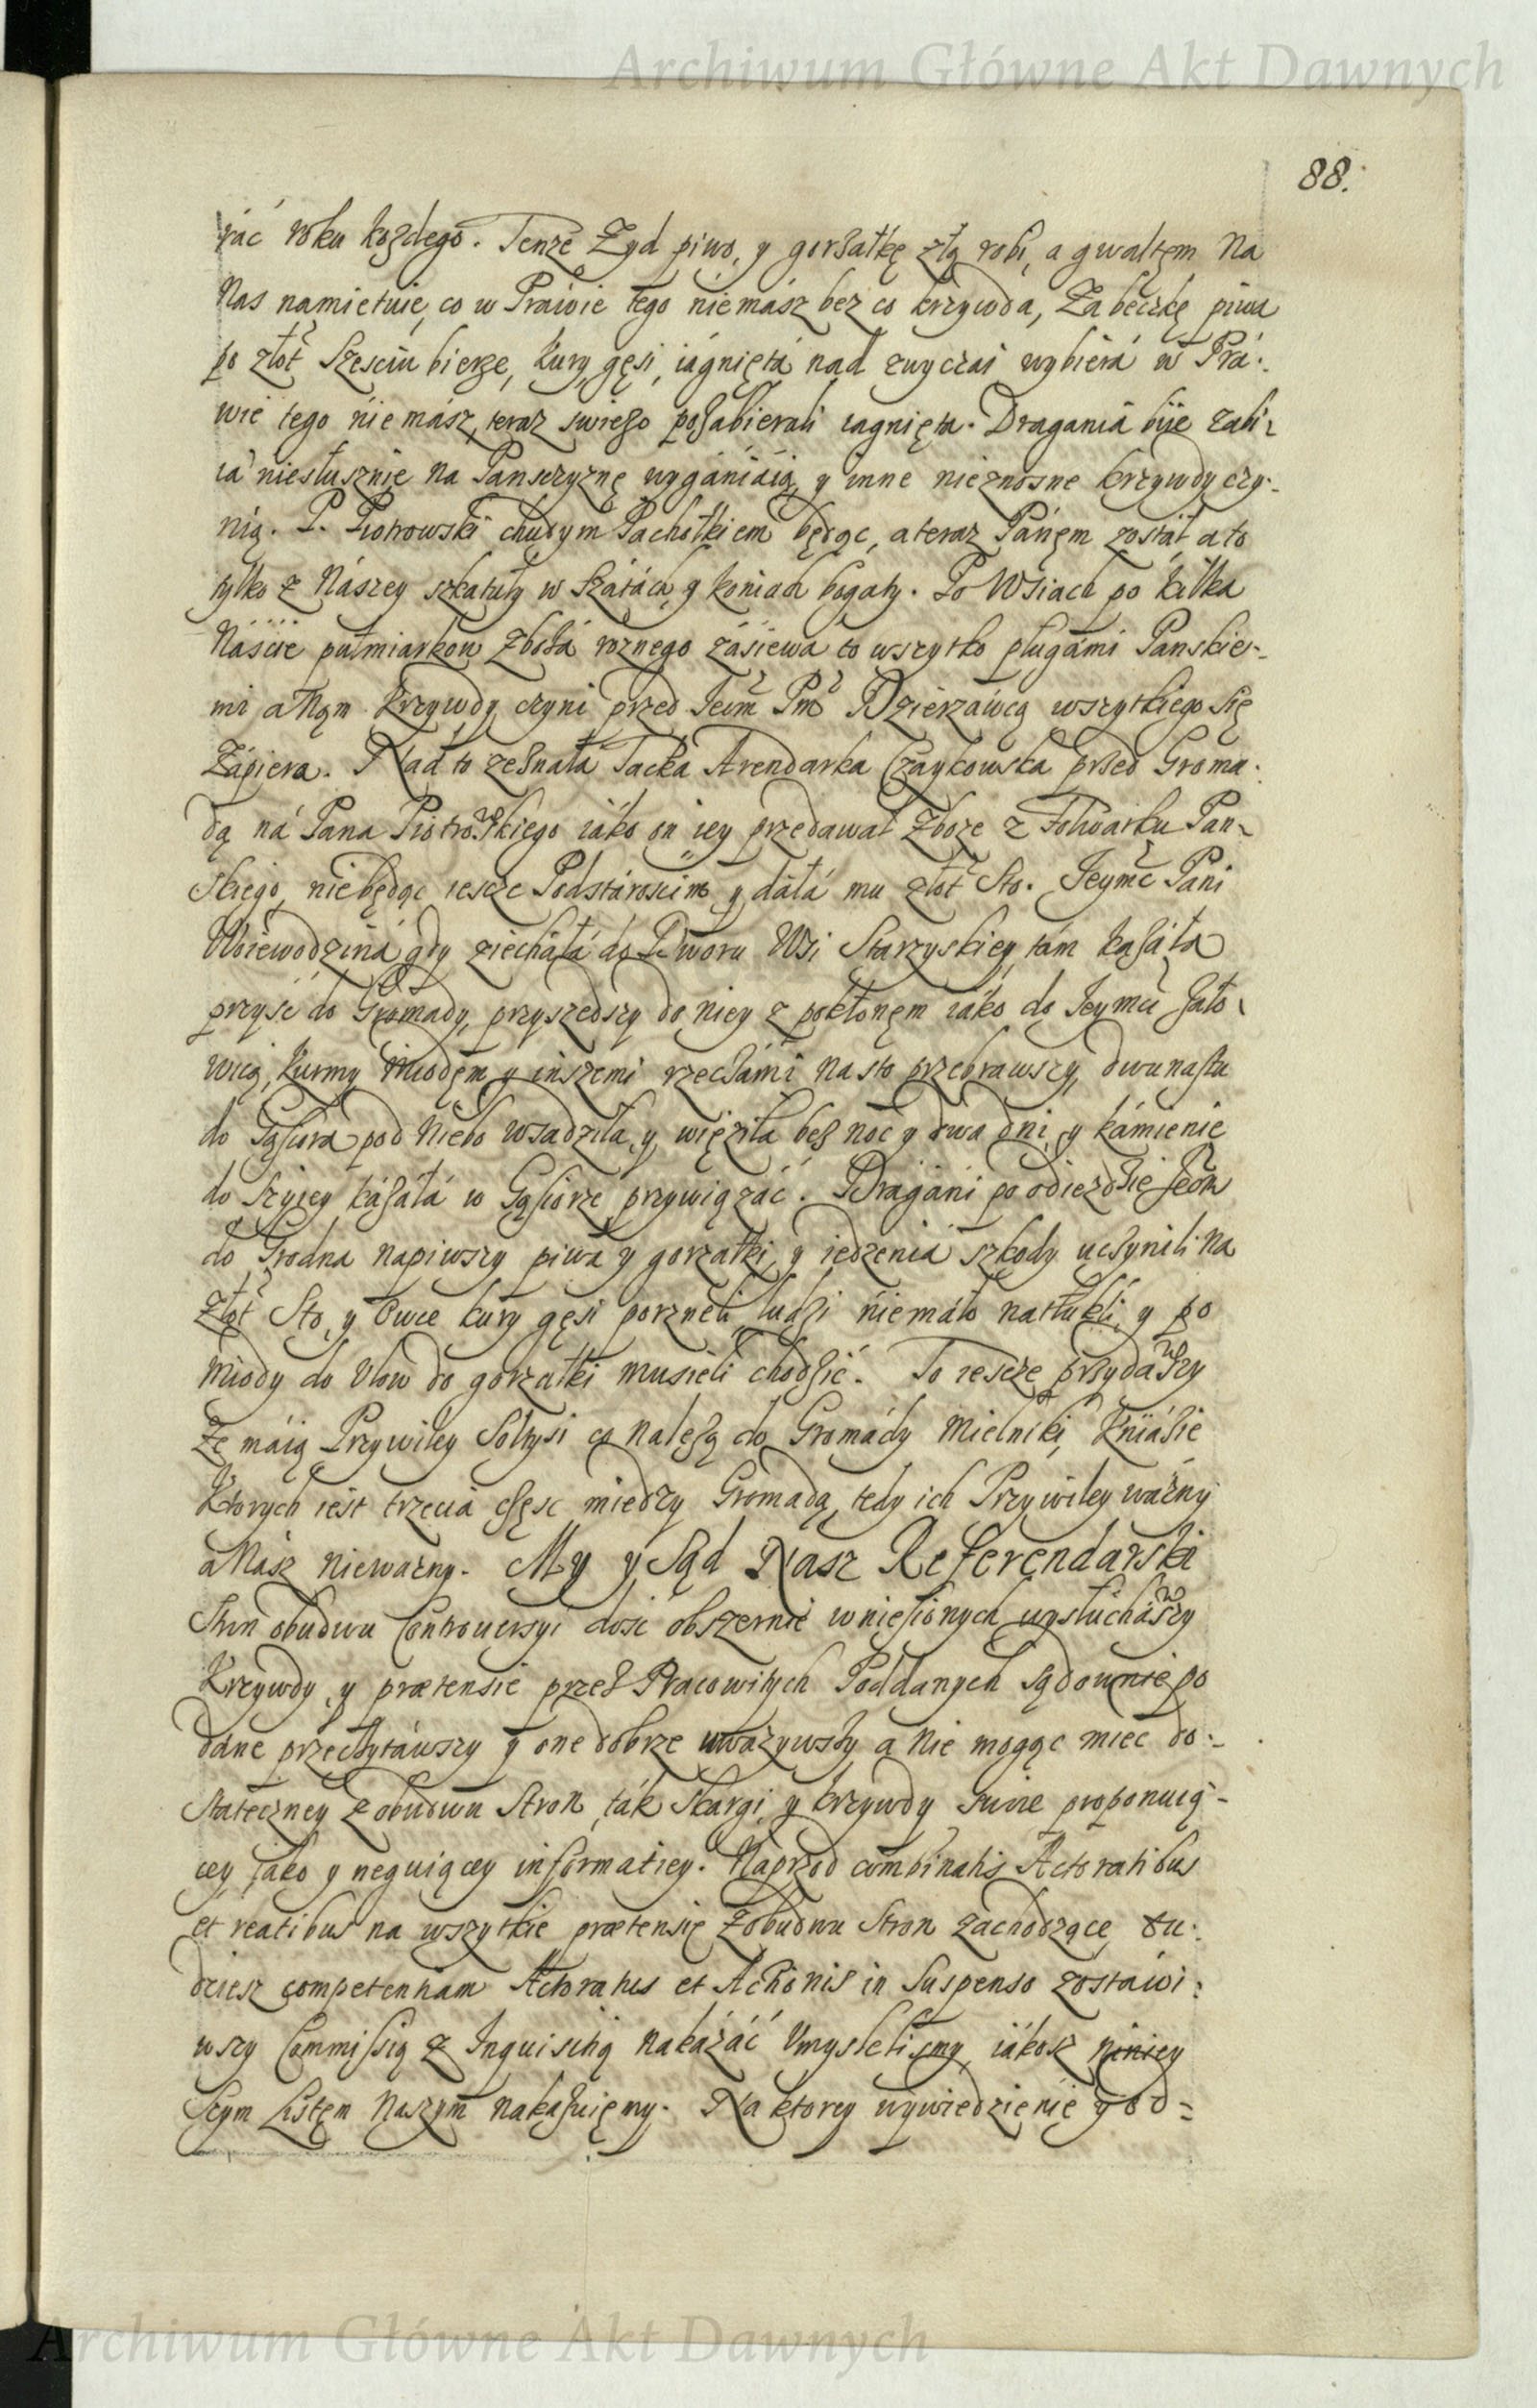 Archiwum Główne Akt Dawnych
88.
rać roku kozdego. Tenze Zyd piwo, y gorzałkę złą robi, a gwałtem na
nas namietuie, co w Prawie tego niemasz bez co krzywda, Za beczkę piwa
po złot szesciu bierze, kury, gęsi, iagnięta nad zwyczai wybiera w Pra:
wie tego niemasz, teraz swiezo pozabierali iagnięta. Dragania biie zabi:
ia niesłusznie na Panszczyznę wyganiaią, y inne nieznosne krzywdy czy:
nią. P. Piotrowski chudym Pachołkiem będąc, a teraz Panem został a to
tylko z Naszey szkatuły w szatach, y koniach bogaty. Po Wsiach po kilka
naście pułmiarkow zboza roznego zasiewa to wszytko pługami Panskie:
mi a Nąm krzywdy czyni przed Jeim Pm Dzierzawcą wszytkiego się
Zapiera. Nad to zeznała Jacka Arendarka Czaykowska przed Groma:
dą na Pana Piotrowskiego iako on iey przedawał zboze z Folwarku Pan:
skiego, niebędąc iescze Podstaroscim y dała mu złot sto. Jeymć Pani
Woiewodzina gdy ziechała do Dworu Wsi Starzyskiey, tam kazała
przyść do Gromady, przyszedszy do niey z pokłonęm iako do Jeymci zało:
wicą, kurmy miodęm y inszemi rzeczami na sto przebrawszy, dwunastu
do Gąsiora pod niebo wsadziła, y więziła bez noc y dwa dni, y kamienie
do szyiey kazała w Gąsiorze przywiązać. Dragani po odiezdzie Jeom
do Grodna napiwszy piwa y gorzałki, y iedzenia szkody uczynili na
złot Sto, y owce kury gęsi porzneli, ludzi niemało natłukli, y po
miody do Ulow do gorzałki musieli chodzić. To iescze przydawszy
Ze maią Przywiley Sołtysi co nalezą do Gromady Mielniki, Kniazie
Ktorych iest trzecia częsc miedzy Gromadą, tedy ich Przywiley wazny
a Nasz niewazny. My y Sąd Nasz Referendarski
Stron obudwu Controuersyi dość obszernie wniesionych, wysłuchawszy
Krzywdy, y prætensie przez Pracowitych Poddanych sądownie po
dane przeczytawszy y one dobrze uwazywszy a nie mogąc miec do:
stateczney z obudwu Stron, tak skargi, y krzywdy swoie proponuią:
cey, jako y neguiącey informatiey. Naprzod combinatis Actoratibus
et reatibus na wszytkie prætensię z obudwu Stron zachodzące, tu:
dziesz competentiam Actoratus et Actionis in suspenso zostawi:
wszy Commissią z Inquisitią nakazać Umyslelismy, iakosz niniey
szym Listęm Naszym nakazuięmy. Na ktorey wywiedzienie y od=
Archiwum Główne Akt Dawnych